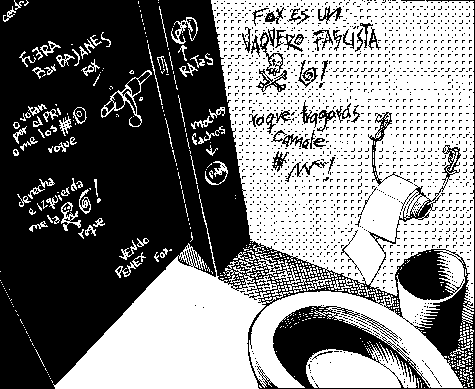 FUERA
BarBAJANES
FOX
o votan
por el PRI
o me los #@
roque
derecha
e Izquierda
me la @!
roque
VENDO
PEMEX FOX
PRI
RATAS
mochos
fachos
PAN
FOX ES UN
VAQUERO FASCISTA
@!
roque: tragarás
camote
#